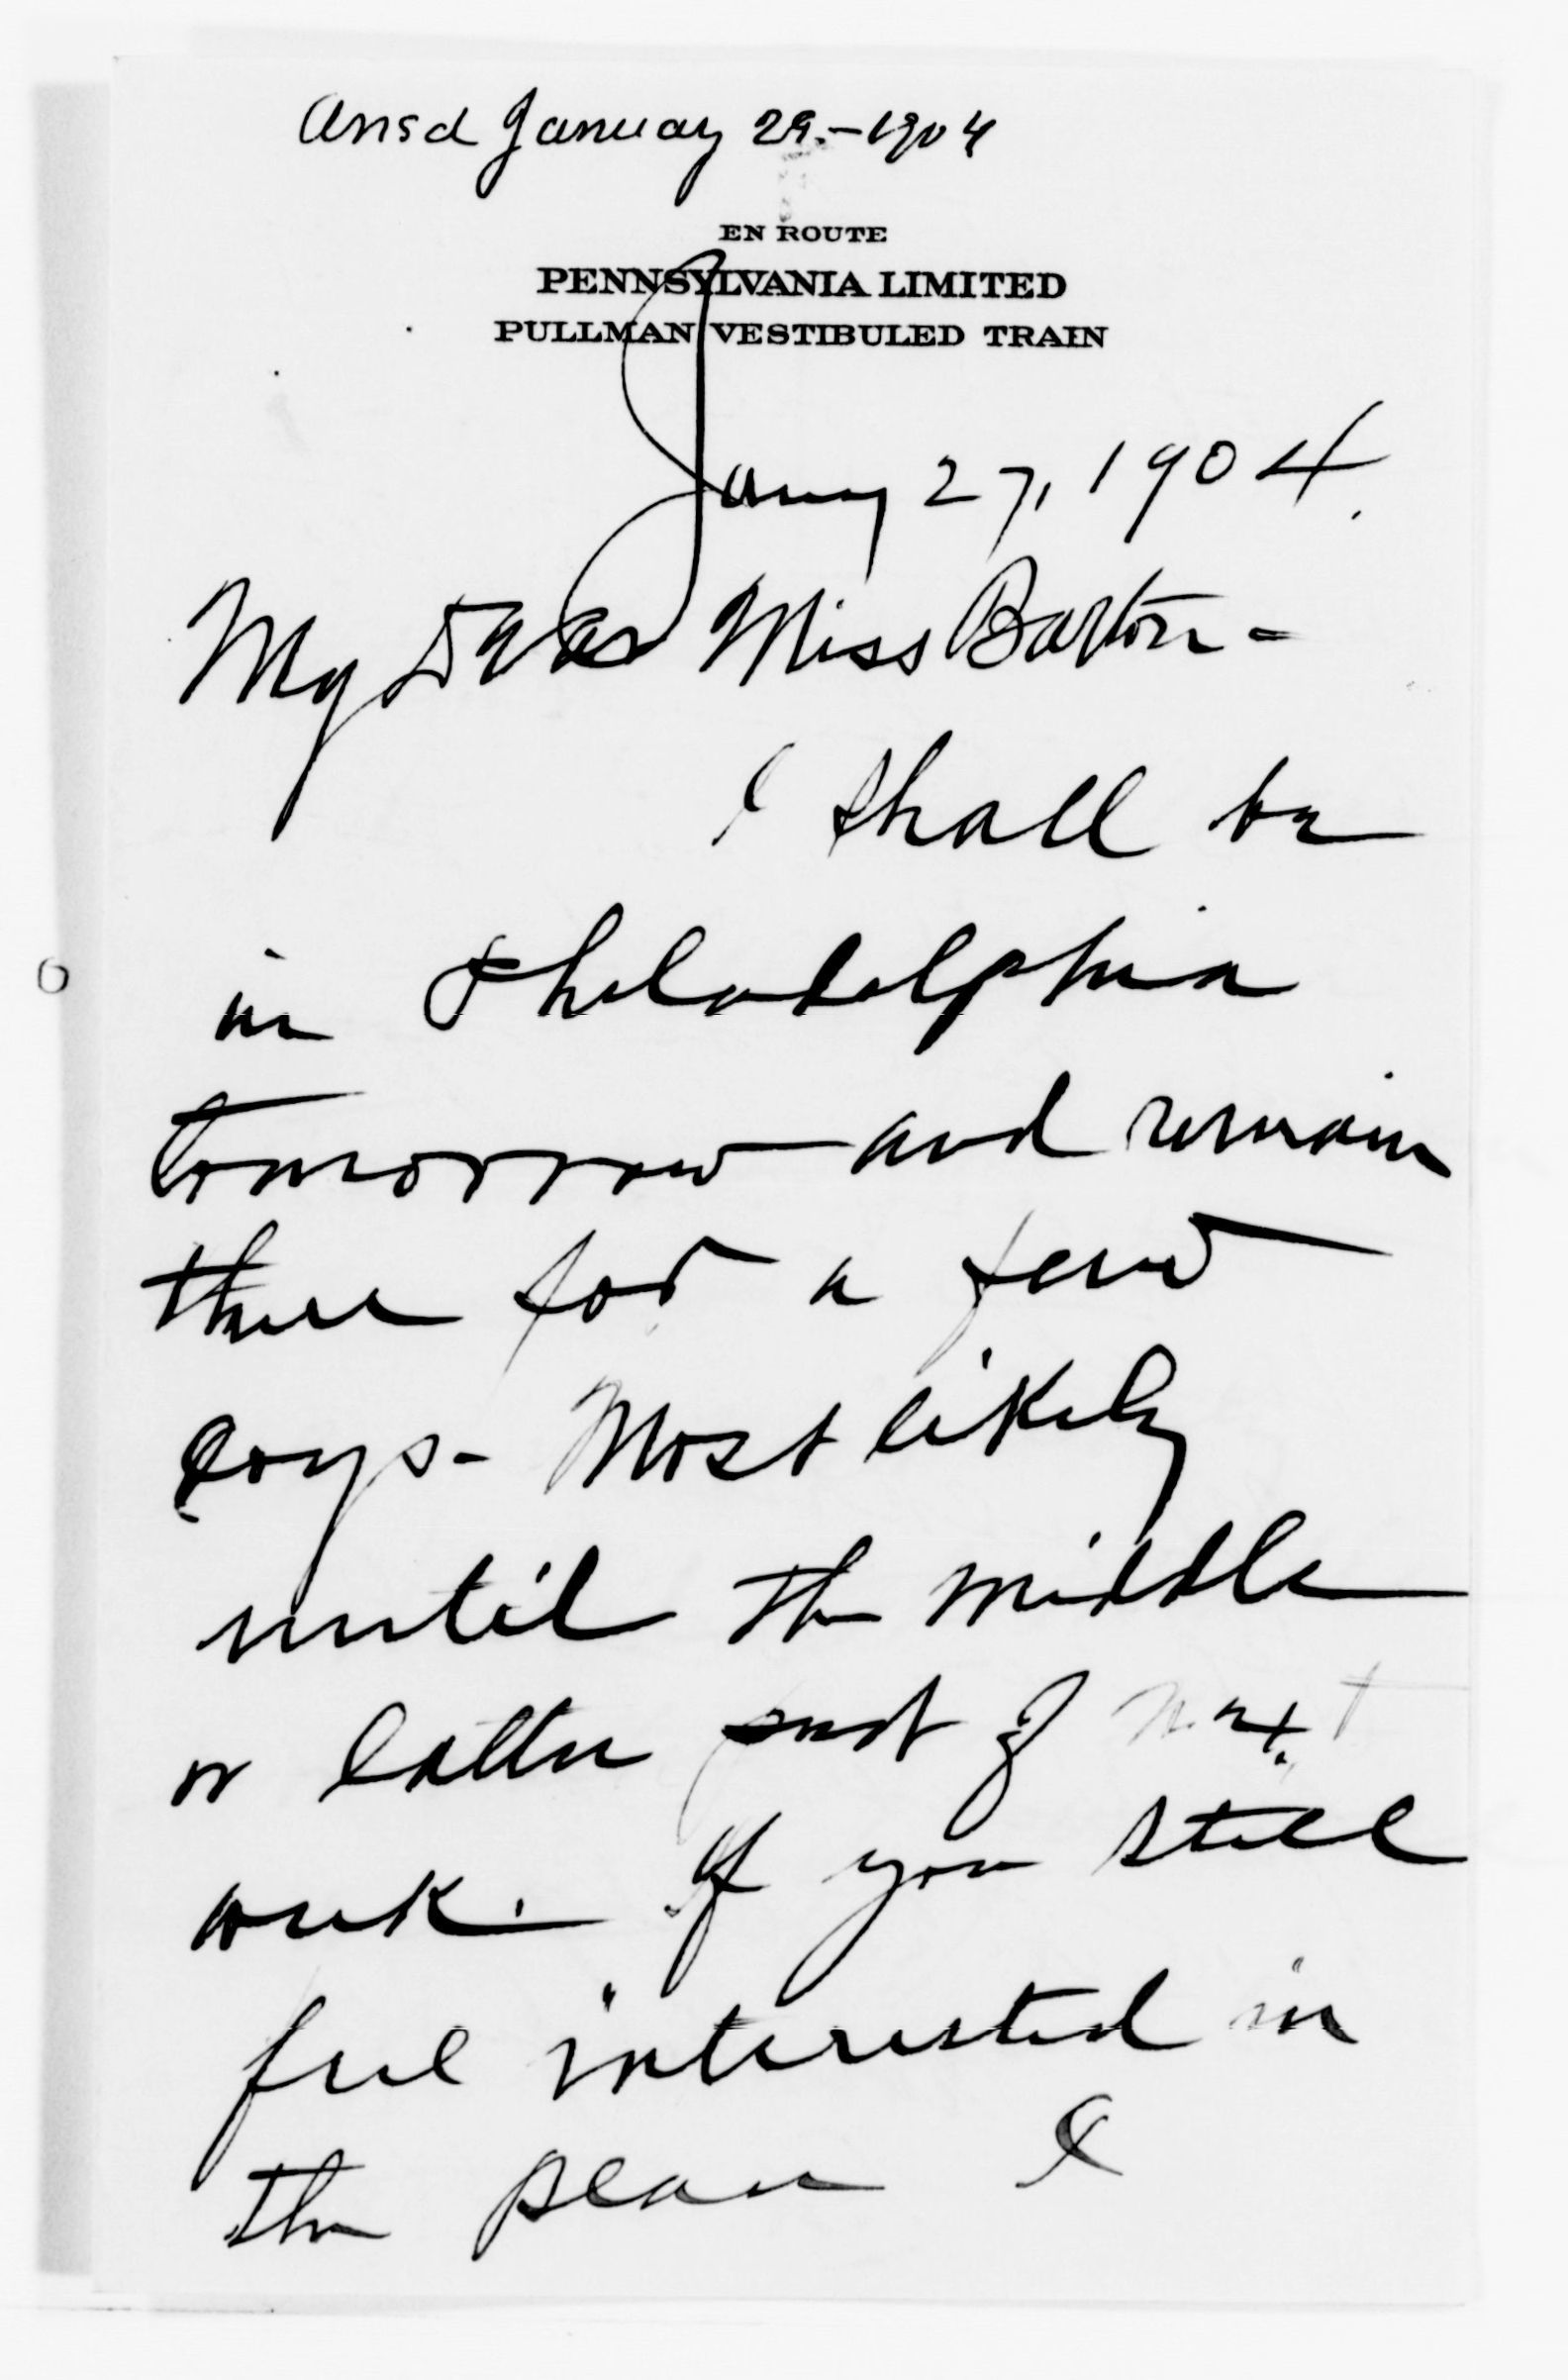 Ansd January 29.-1904
EN ROUTE
PENNSYLVANIA LIMITED
PULLMAN VESTIBULED TRAIN
Jany 27, 1904.
My Dear Miss Barton-
I shall be
in Philadelphia
tomorrow and remain
there for a few
days- Most likely
until the middle
or latter part of next
week. If you still
feel interested in
the plan I